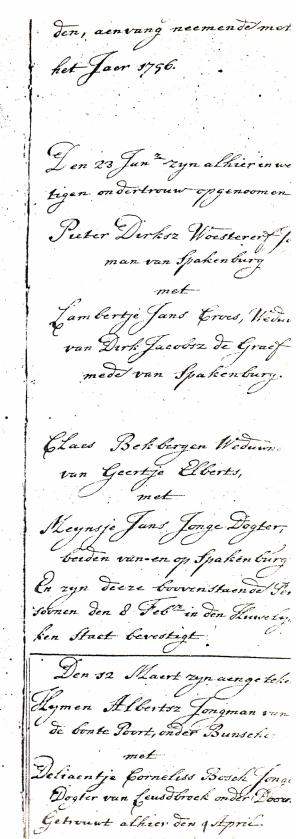 den, aenvang neemende met
het Jaer 1756.
Den 23 Jan.r zyn alhier in we
tigen ondertrouw opgenoomen
Pieter Dirksz Woestererf J
man van Spakenburg
met
Lambertje Jans Croes, Wedu
van Dirk Jacobsz de Graef
mede van Spakenburg.
Claes Bekbergen Weduwn
van Geertje Elberts,
met
Meynsje Jans Jonge Dogter,
beiden van en op Spakenburg
En zyn deeze boovenstaende Per
soonen den 8 Feb.r in den Huwely
ken staet bevestigt
Den 12 Maert zyn aengeteke
Hymen Albertsz Jongman van
de bonte Poort, onder Bunscho
met
Deliaentje Corneliss Bosch Jonge
Dogter van Leusdbroek onder
Getrouwt alhier den 4 April.